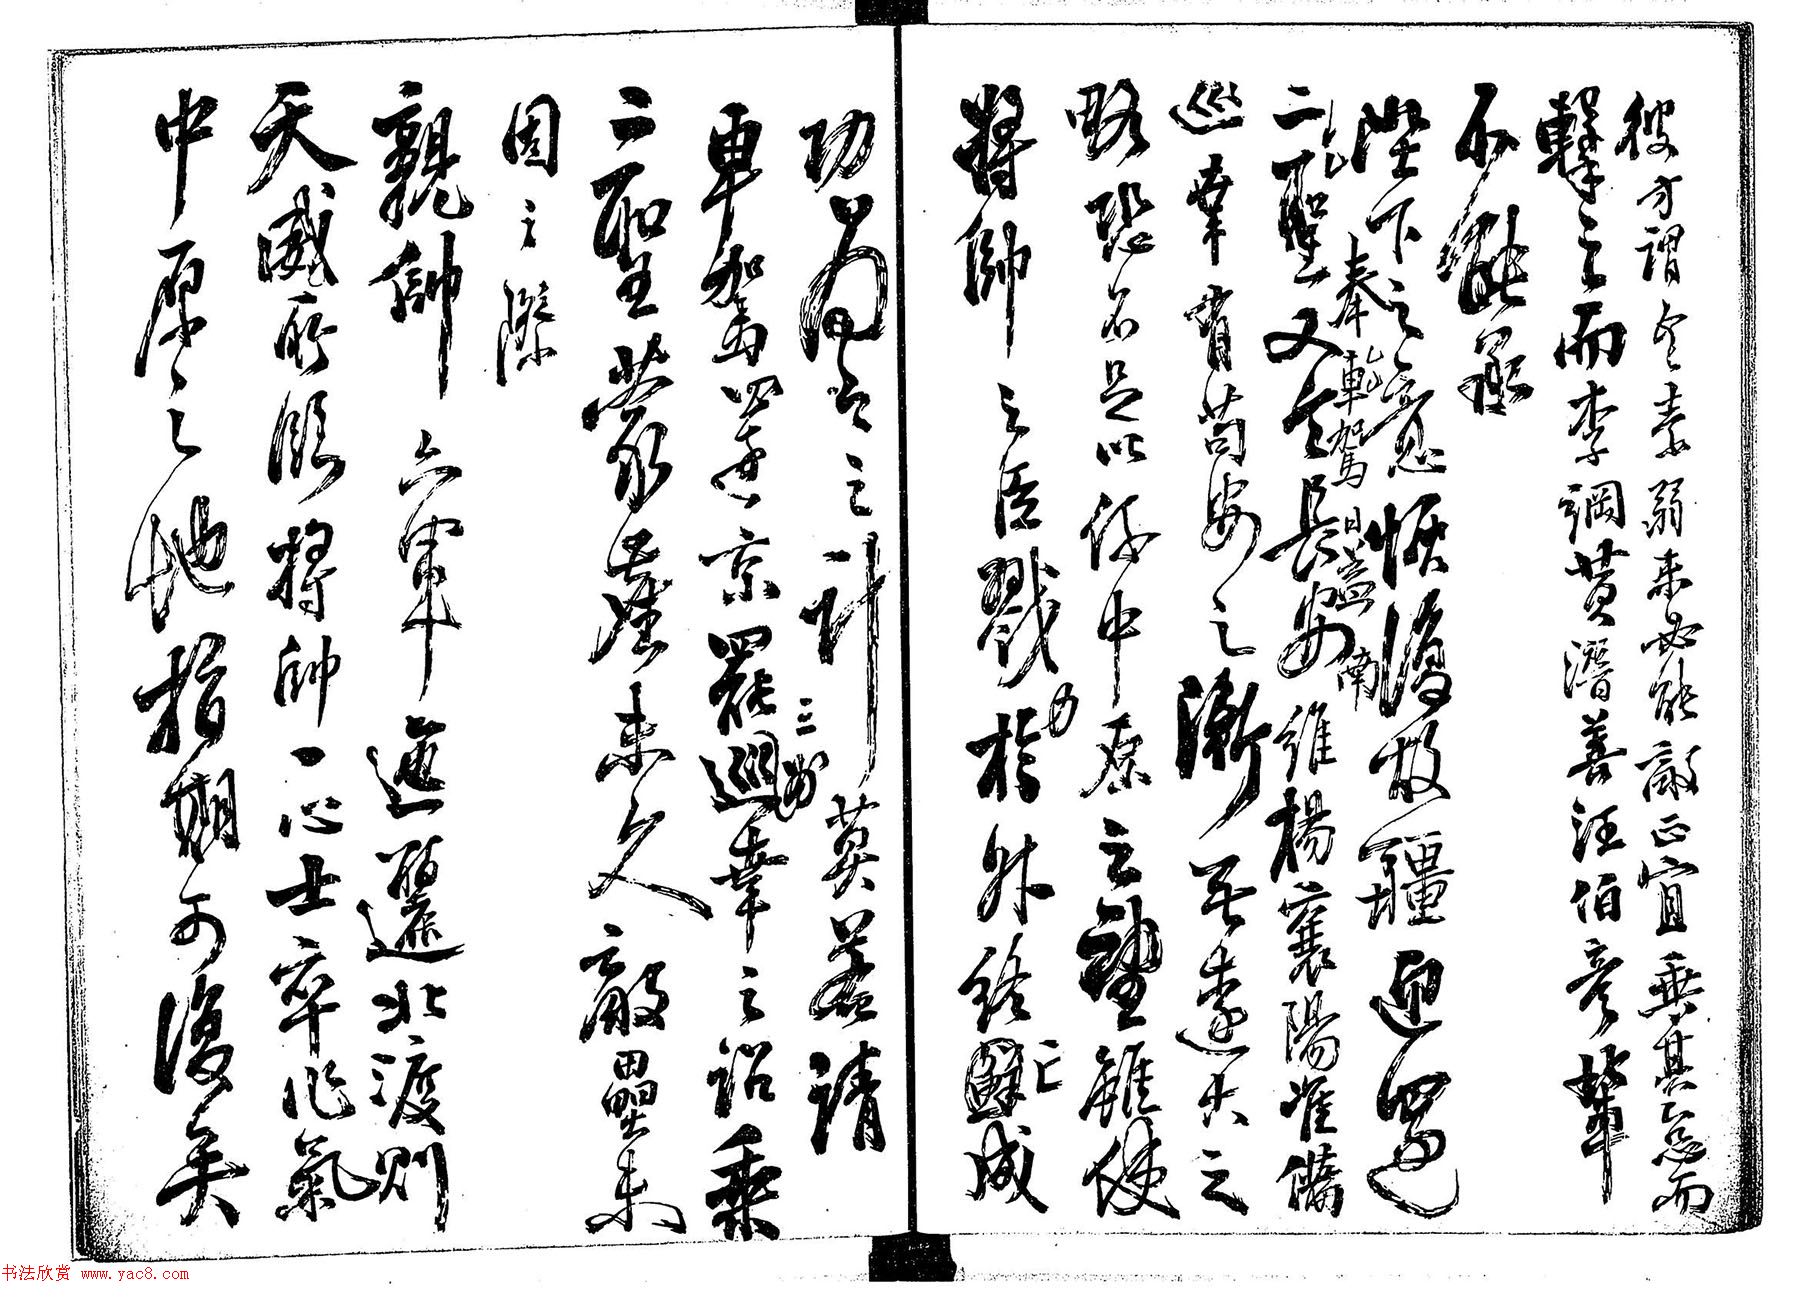 彼方謂吾素弱未必能敵正宜乘其怠而
擊之而李綱黃潛善汪伯彥輩
不能承
陛下之意恢復故疆迎還
二聖奉車駕日益南又令長安維楊襄陽准備
巡幸有苟安之漸無遠大之
略恐不足以係中原之望雖使
將帥之臣戮力於外終亡成
功為今之計莫若請
車駕還京罷三州巡幸之詔乘
二聖蒙塵未久敵壘未
固之際
親帥六軍迤邐北渡則
天威所臨將帥一心士卒作氣
中原之地指期可復矣
书法欣赏 www.yac8.com